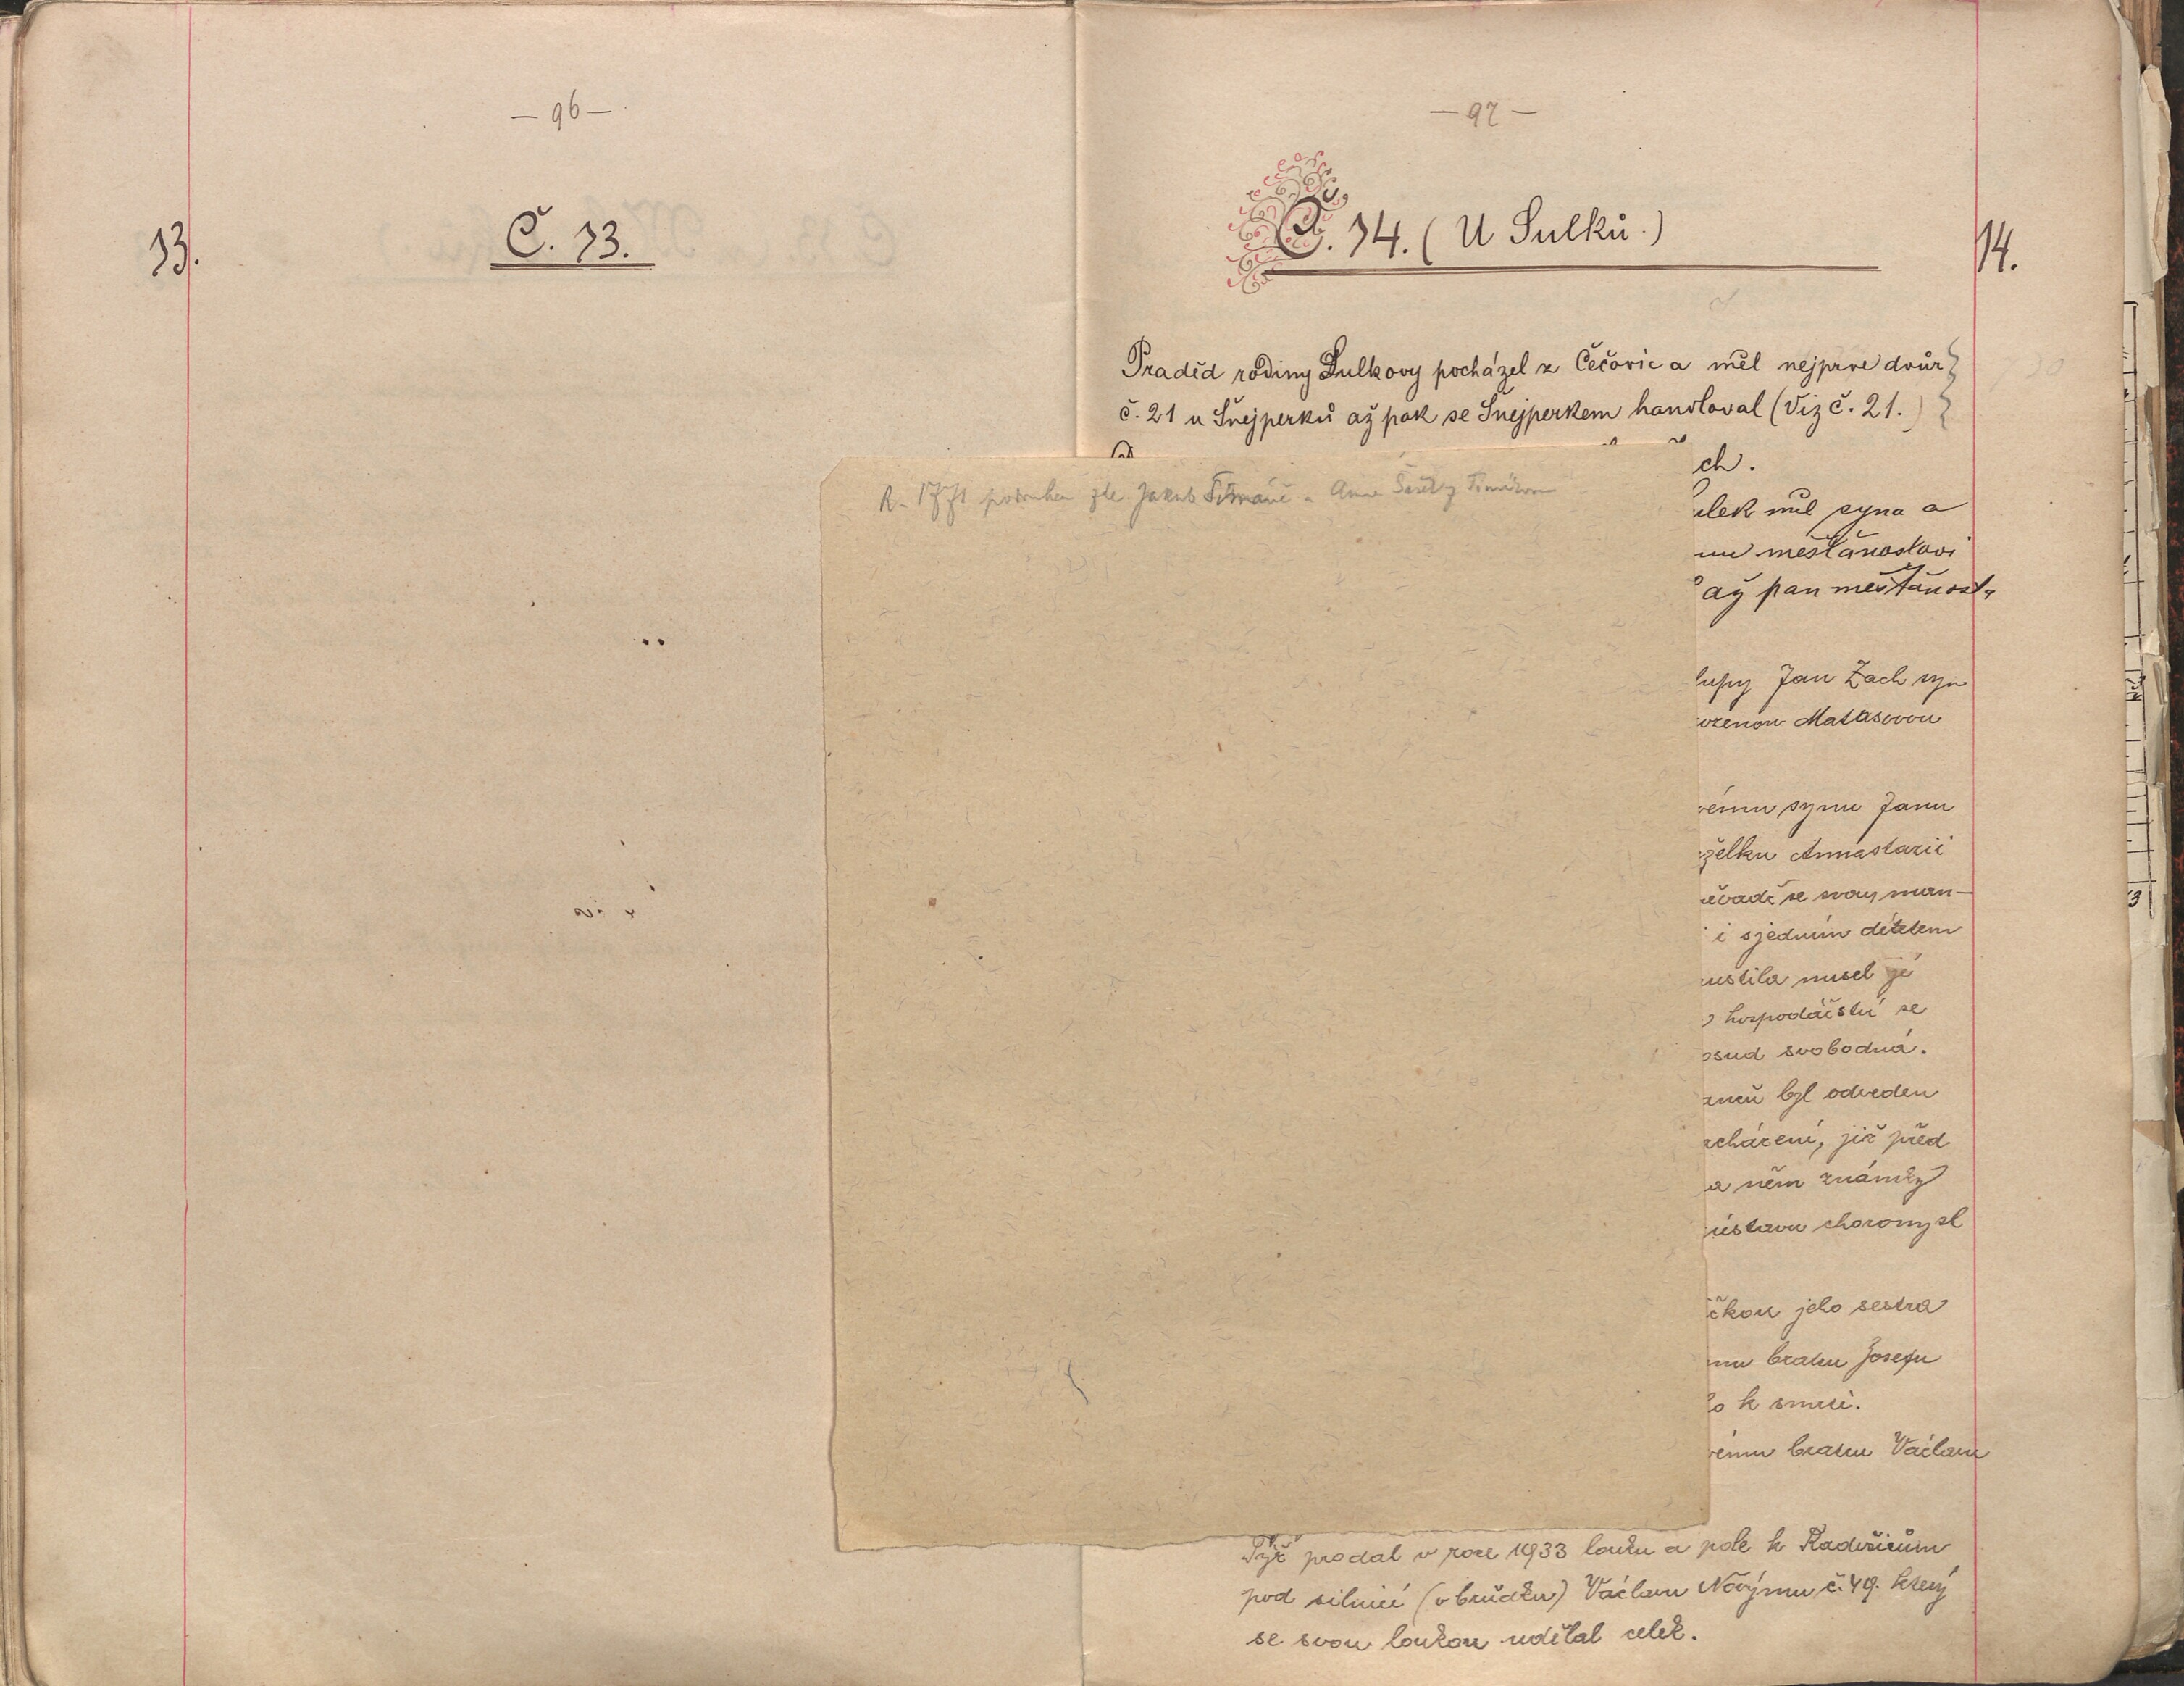 — 96 —
13.
Č. 13.
— 97 —
Č. 14. (U Sulků.)
14.
Praděd rodiny Sulkovy pocházel z Čečovic a měl nejprve dvůr
č. 21 u Šnejperků až pak se Šnejperkem handloval (Viz č. 21.)
ch.
R. 1771 podruhem zde Jakub a Anna
ulek měl syna a
mu měšťanostovi
až pan měšťanosta
lupy Jan Žach syn
ozenou Matasovou
vému synu Janu
želku Annastazii
se svou man-
i sjedním dítětem
ustila musel je
hospodářství se
osud svobodná.
byl odveden
acházení, již před
a něm známky
ústavu choromysl
čkou jeho sestra
mu bratru Josefu
o k smrti.
vému bratru Václavu
Týž prodal v roce 1933 louku a pole k Radvěicům
pod silnicí (v brůdku) Václavu Novýmu č. 49. který
se svou loukou udělal celek.